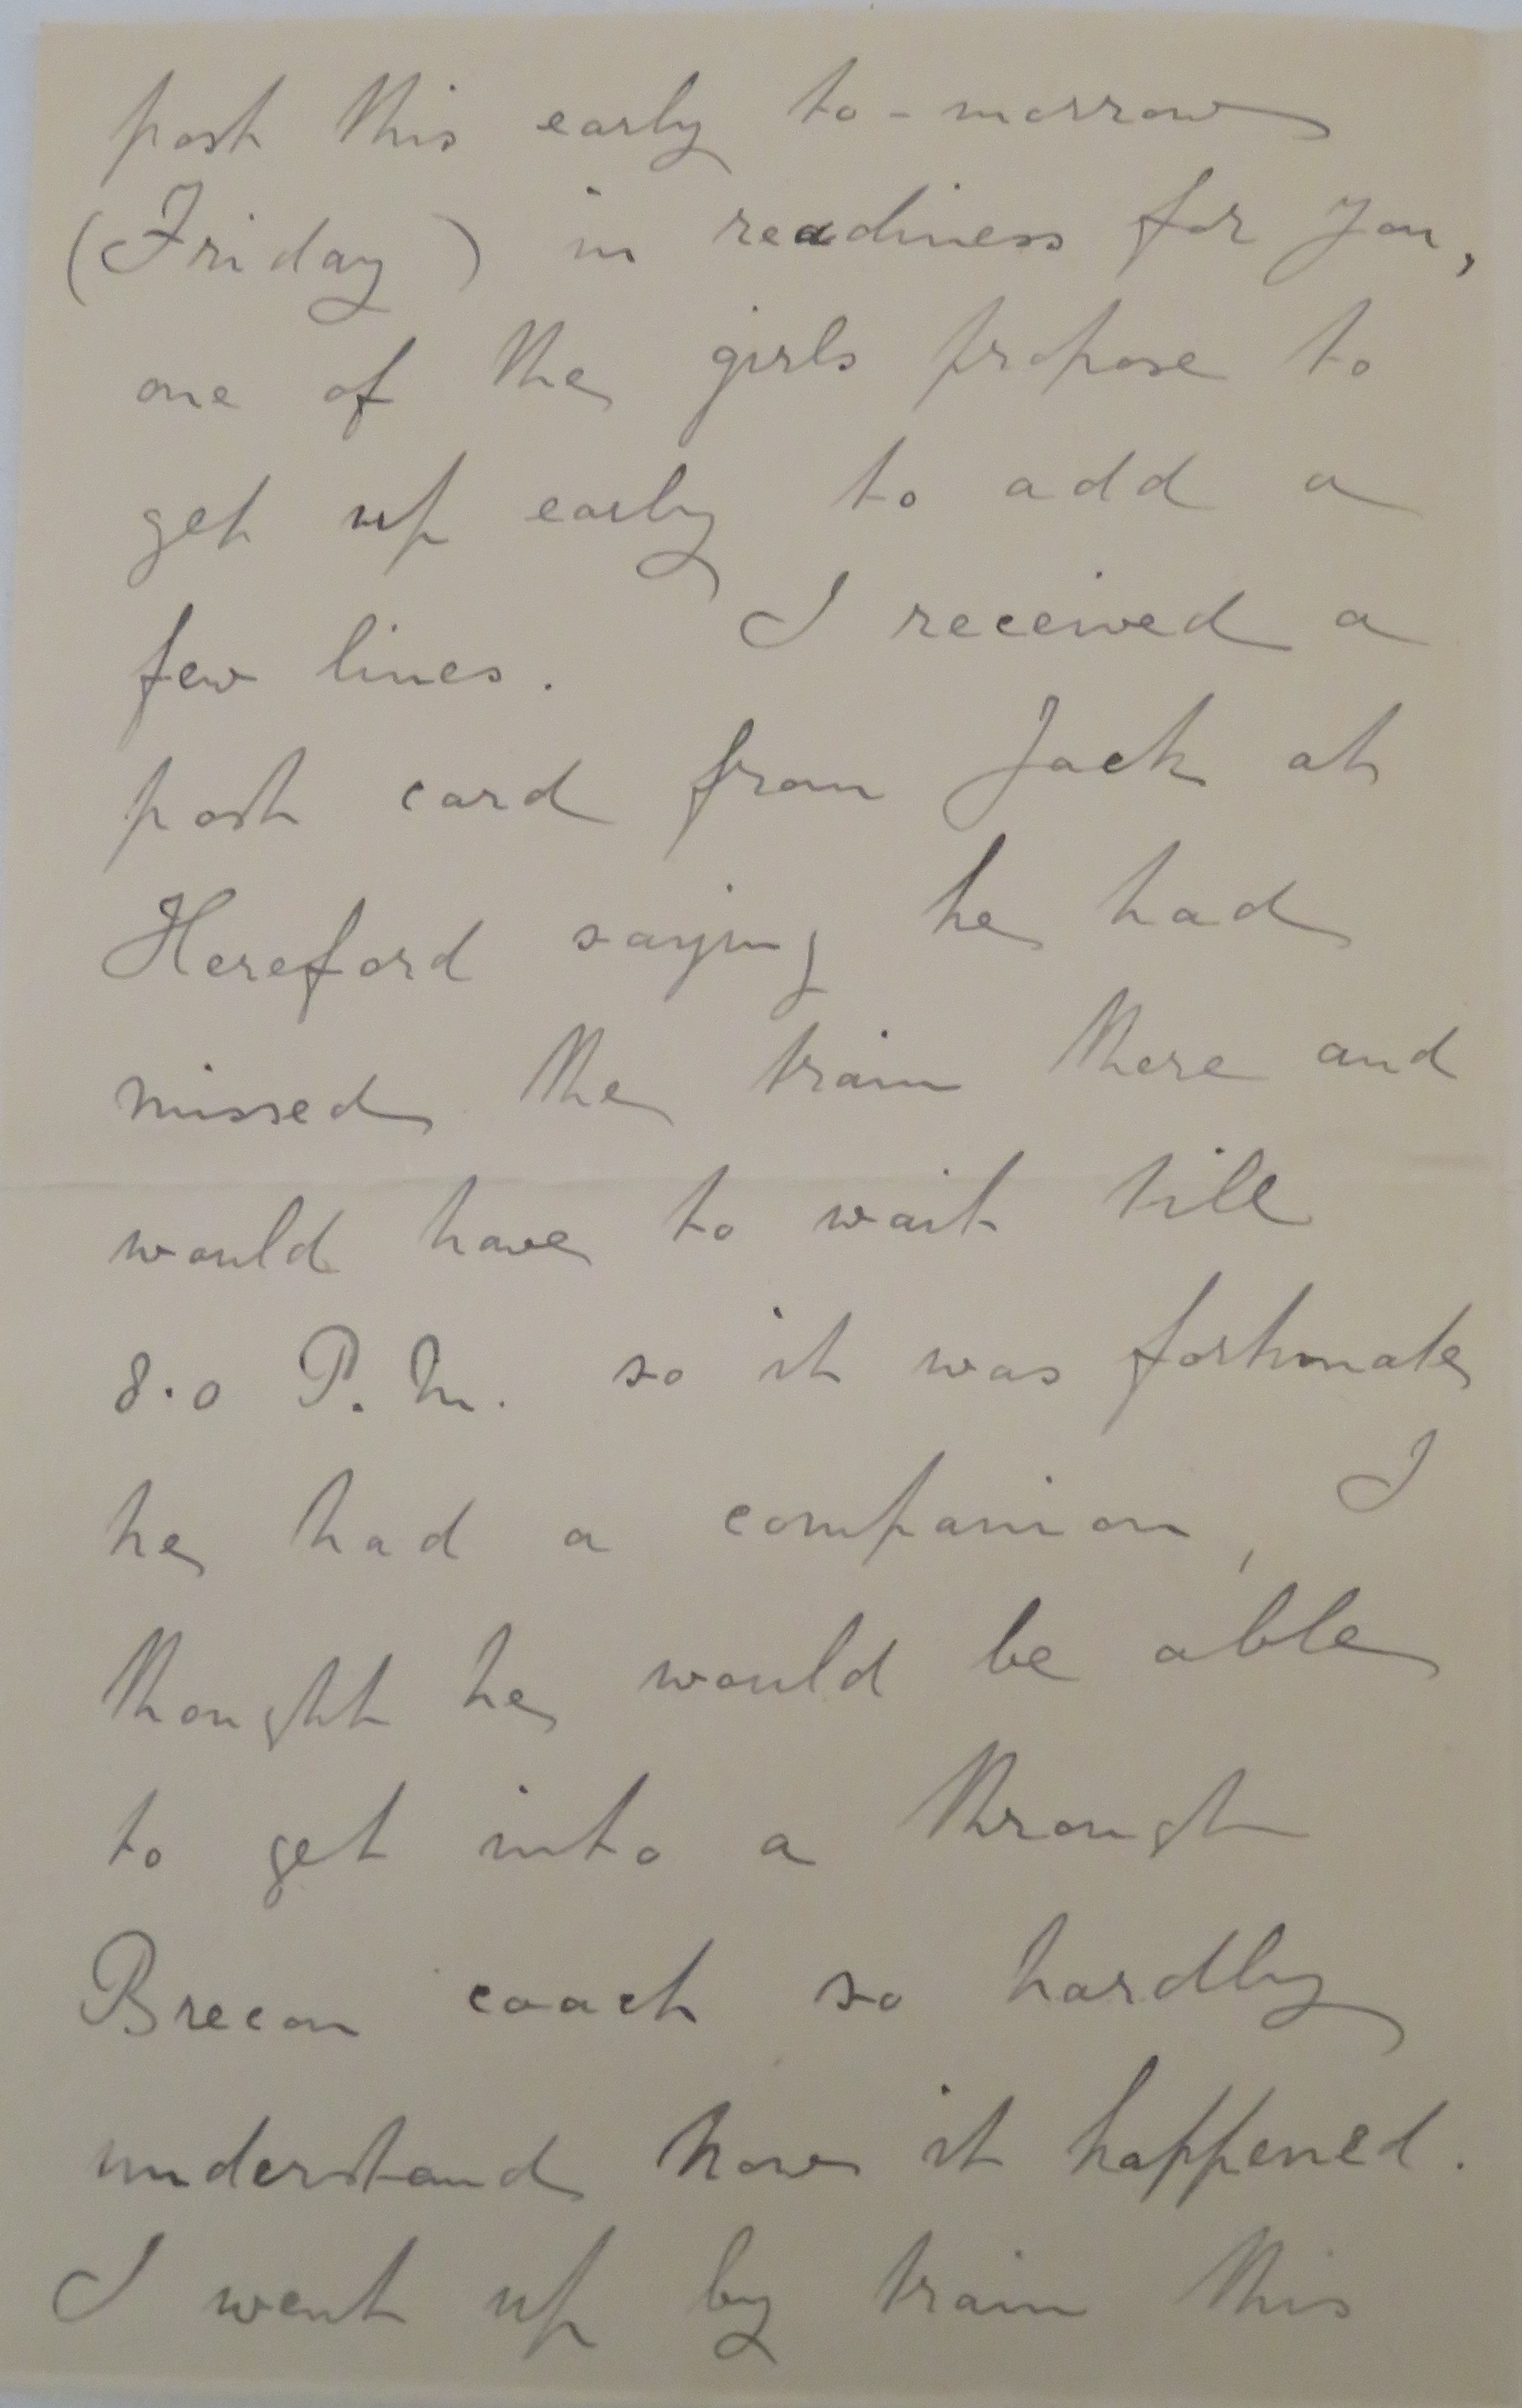 post this early to-morrow
(Friday) in readiness for you,
one of the girls propose to
get up early to add a
few lines. I received a
post card from Jack at
Hereford saying he had
missed the train there and
would have to wait till
8.0 P.M. so it was fortunate
he had a companion, I
thought he would be able
to get into a through
Brecon coach so hardly
understand how it happened.
I went up by train this